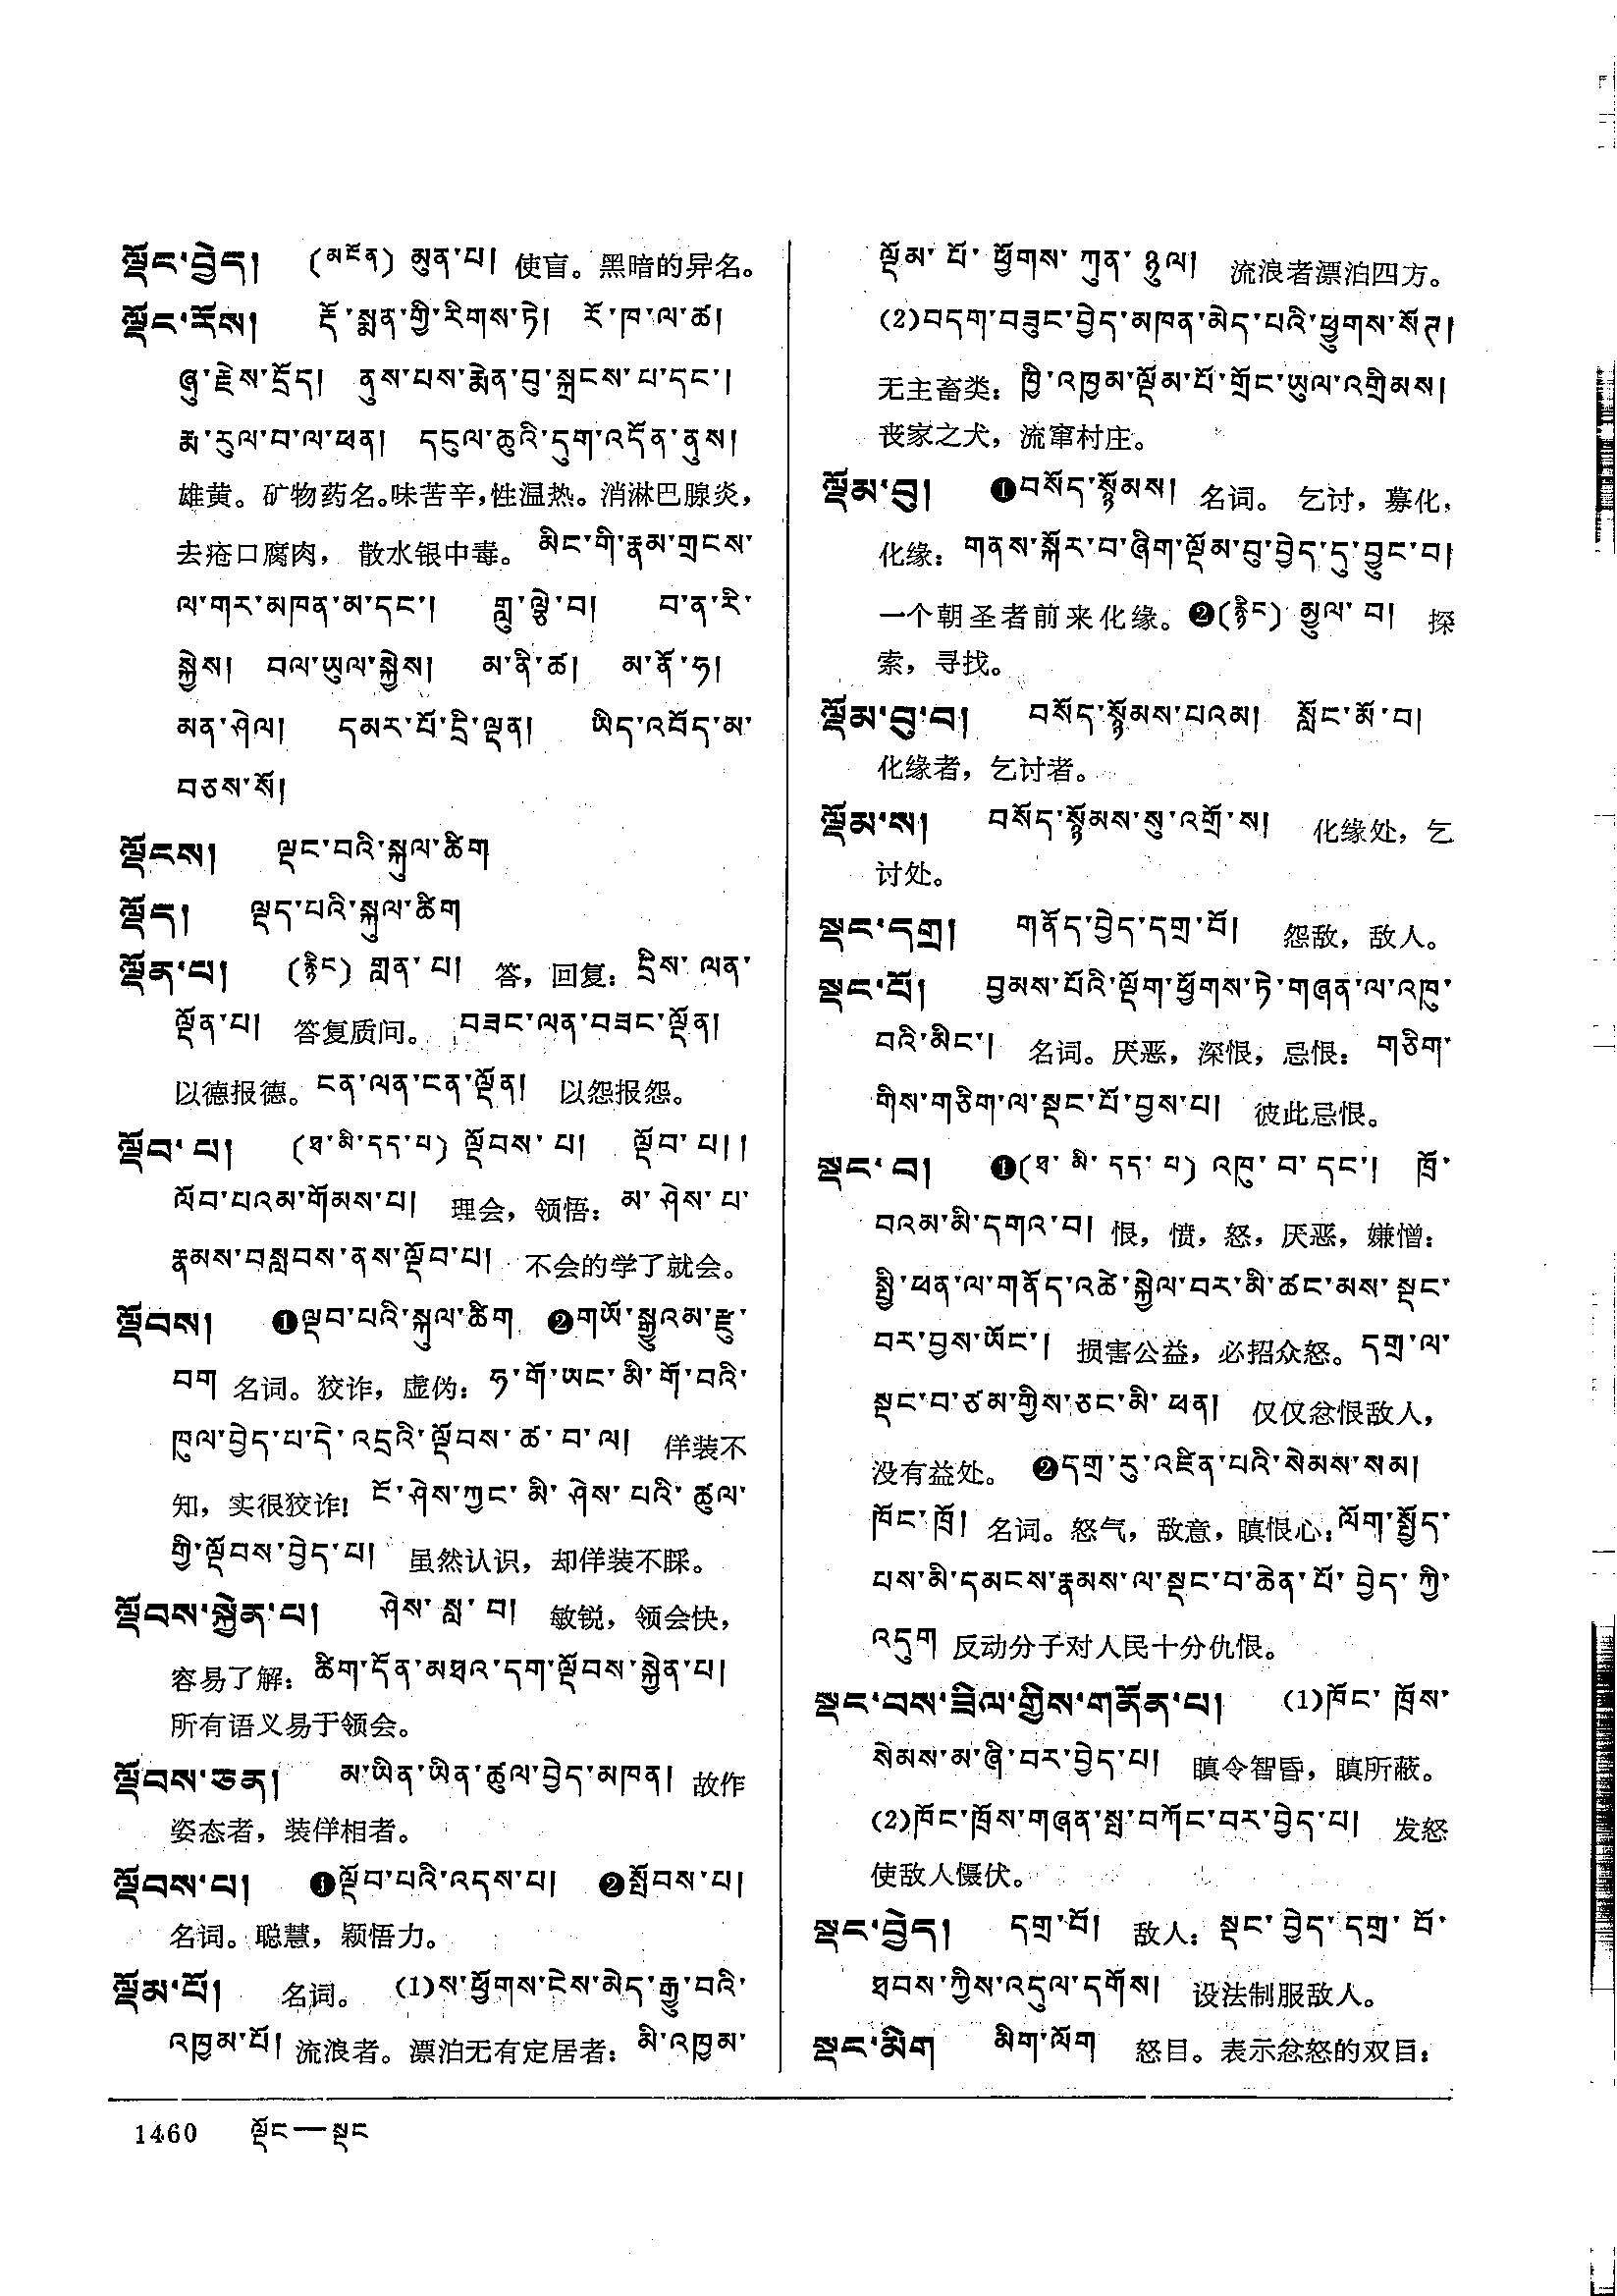 ལྡོང་བྱེད། (མངོན) མུན་པ། 使盲。黑暗的异名。
ལྡོང་རོས། རྡོ་སྨན་གྱི་རིགས་ཏེ། རོ་ཁ་ལ་ཚ།
ཞུ་རྗེས་དྲོད། ནུས་པས་རྨེན་བུ་སྐྲངས་པ་དང་།
རྨ་རུལ་བ་ལ་ཕན། དངུལ་ཆུའི་དུག་འདོན་ནུས།
雄黄。矿物药名。味苦辛，性温热。消淋巴腺炎，
去疮口腐肉，散水银中毒。མིང་གི་རྣམ་གྲངས་
ལ་གར་མཁན་མ་དང་། ཀླུ་ལྕེ་བ། བ་ན་རི་
སྐྱེས། བལ་ཡུལ་སྐྱེས། མ་ནི་ཚ། མ་ནོ་ཧ།
མན་ཤེལ། དམར་པོ་དྲི་ལྡན། ཡིད་འབོད་མ་
བཅས་སོ།
ལྡོངས། ལྡང་བའི་སྐུལ་ཚིག
ལྡོད། ལྡད་པའི་སྐུལ་ཚིག
ལྡོན་པ། (རྙིང) གླན་པ། 答，回复：དྲིས་ལན་
ལྡོན་པ། 答复质问。བཟང་ལན་བཟང་ལྡོན།
以德报德。ངན་ལན་ངན་ལྡོན། 以怨报怨。
ལྡོབ་པ། (ཐ་མི་དད་པ) ལྡོབས་པ། ལྡོབ་པ།།
ལོབ་པའམ་གོམས་པ། 理会，领悟：མ་ཤེས་པ་
རྣམས་བསླབས་ནས་ལྡོབ་པ། 不会的学了就会。
ལྡོབས། ❶ལྡབ་པའི་སྐུལ་ཚིག ❷གཡོ་སྒྱུའམ་རྫུ་
བག 名词。狡诈，虚伪：ཧ་གོ་ཡང་མི་གོ་བའི་
ཁུལ་བྱེད་པ་དེ་འདྲའི་ལྡོབས་ཚ་བ་ལ། 佯装不
知，实很狡诈! ངོ་ཤེས་ཀྱང་མི་ཤེས་པའི་ཚུལ་
གྱི་ལྡོབས་བྱེད་པ། 虽然认识，却佯装不睬。
ལྡོབས་སྐྱེན་པ། ཤེས་སླ་བ། 敏锐，领会快，
容易了解：ཚིག་དོན་མཐའ་དག་ལྡོབས་སྐྱེན་པ།
所有语义易于领会。
ལྡོབས་ཅན། མ་ཡིན་ཡིན་ཚུལ་བྱེད་མཁན། 故作
姿态者，装佯相者。
ལྡོབས་པ། ❶ལྡོབ་པའི་འདས་པ། ❷སྤོབས་པ།
名词。聪慧，颖悟力。
ལྡོམ་པོ། 名词。(1)ས་ཕྱོགས་ངེས་མེད་རྒྱུ་བའི་
འཁྱམ་པོ། 流浪者。漂泊无有定居者：མི་འཁྱམ་
ལྡོམ་པོ་ཕྱོགས་ཀུན་ཉུལ། 流浪者漂泊四方。
(2)བདག་བཟུང་བྱེད་མཁན་མེད་པའི་ཕྱུགས་སོཊ།
无主畜类：ཁྱི་འཁྱམ་ལྡོམ་པོ་གྲོང་ཡུལ་འགྲིམས།
丧家之犬，流窜村庄。
ལྡོམ་བུ། ❶བསོད་སྙོམས། 名词。乞讨，募化，
化缘：གནས་སྐོར་བ་ཞིག་ལྡོམ་བུ་བྱེད་དུ་བྱུང་བ།
一个朝圣者前来化缘。❷(རྙིང) མྱུལ་བ། 探
索，寻找。
ལྡོམ་བུ་བ། བསོད་སྙོམས་པའམ། སློང་མོ་བ།
化缘者，乞讨者。
ལྡོམ་ས། བསོད་སྙོམས་སུ་འགྲོ་ས། 化缘处，乞
讨处。
སྡང་དགྲ། གནོད་བྱེད་དགྲ་བོ། 怨敌，敌人。
སྡང་པོ། བྱམས་པོའི་ལྡོག་ཕྱོགས་ཏེ་གཞན་ལ་འཁུ་
བའི་མིང་། 名词。厌恶，深恨，忌恨：གཅིག་
གིས་གཅིག་ལ་སྡང་པོ་བྱས་པ། 彼此忌恨。
སྡང་བ། ❶(ཐ་མི་དད་པ) འཁུ་བ་དང་། ཁྲོ་
བའམ་མི་དགའ་བ། 恨，愤，怒，厌恶，嫌憎：
སྤྱི་ཕན་ལ་གནོད་འཚེ་སྐྱེལ་བར་མི་ཚང་མས་སྡང་
བར་བྱས་ཡོང་། 损害公益，必招众怒。དགྲ་ལ་
སྡང་བ་ཙམ་གྱིས་ཅང་མི་ཕན། 仅仅忿恨敌人，
没有益处。❷དགྲ་རུ་འཛིན་པའི་སེམས་སམ།
ཁོང་ཁྲོ། 名词。怒气，敌意，瞋恨心：ལོག་སྤྱོད་
པས་མི་དམངས་རྣམས་ལ་སྡང་བ་ཆེན་པོ་བྱེད་ཀྱི་
འདུག 反动分子对人民十分仇恨。
སྡང་བས་ཟིལ་གྱིས་གནོན་པ། (1)ཁོང་ཁྲོས་
སེམས་མ་ཞི་བར་བྱེད་པ། 瞋令智昏，瞋所蔽。
(2)ཁོང་ཁྲོས་གཞན་སྤ་བཀོང་བར་བྱེད་པ། 发怒
使敌人慑伏。
སྡང་བྱེད། དགྲ་བོ། 敌人：སྡང་བྱེད་དགྲ་བོ་
ཐབས་ཀྱིས་འདུལ་དགོས། 设法制服敌人。
སྡང་མིག མིག་ལོག 怒目。表示忿怒的双目：
1460 ལྡོང—སྡང